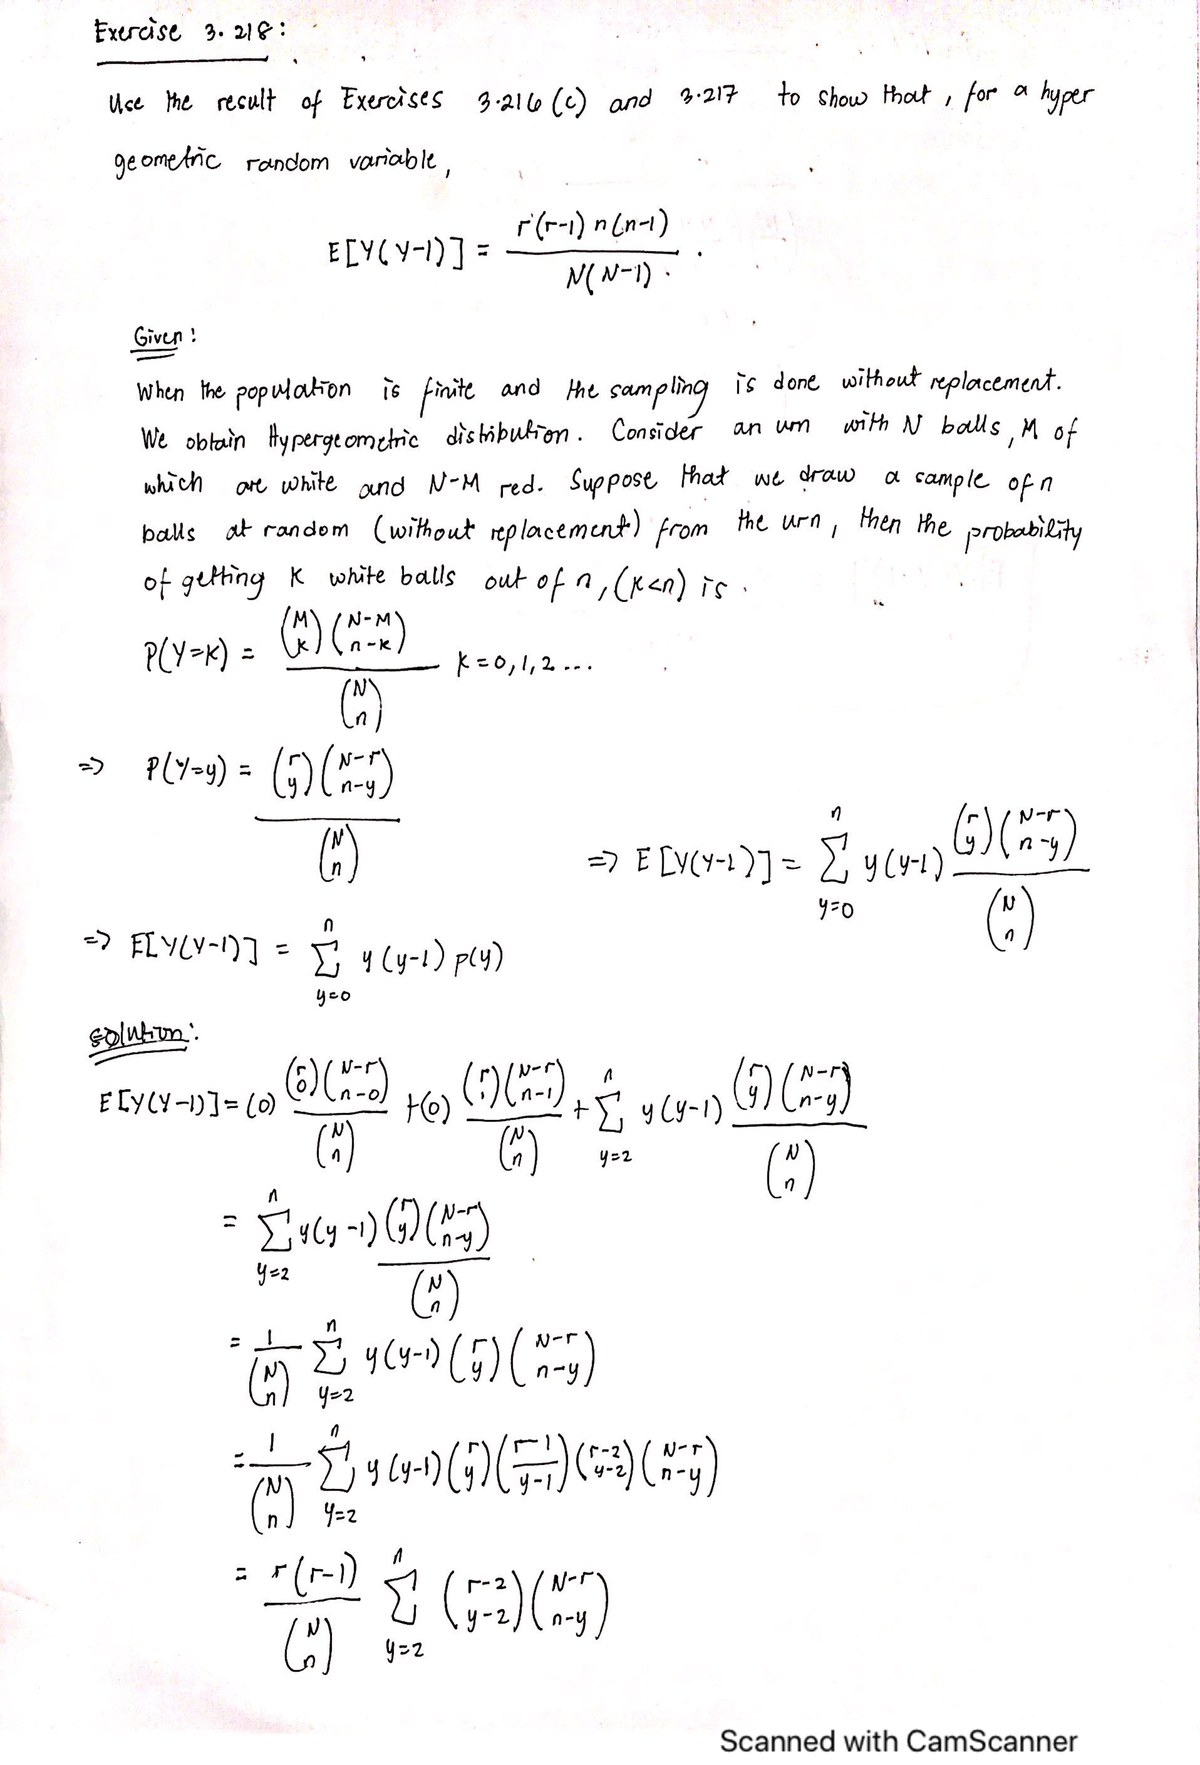 Exercise 3.218:
Use the result of Exercises 3.216 (c) and 3.217 to show that, for a hyper
geometric random variable,
E[Y(Y-1)] = \frac{r(r-1) n(n-1)}{N(N-1)}.
Given:
When the population is finite and the sampling is done without replacement.
We obtain Hypergeometric distribution. Consider an urn with N balls, M of
which are white and N-M red. Suppose that we draw a sample of n
balls at random (without replacement) from the urn, then the probability
of getting K white balls out of n, (K<n) is.
P(Y=K) = \frac{\binom{M}{K} \binom{N-M}{n-K}}{\binom{N}{n}} K=0,1,2...
=> P(Y=y) = \frac{\binom{r}{y} \binom{N-r}{n-y}}{\binom{N}{n}}
=> E[Y(Y-1)] = \sum_{y=0}^{n} y(y-1) \frac{\binom{r}{y} \binom{N-r}{n-y}}{\binom{N}{n}}
=> E[Y(Y-1)] = \sum_{y=0}^{n} y(y-1) p(y)
Solution:
E[Y(Y-1)] = (0) \frac{\binom{r}{0} \binom{N-r}{n-0}}{\binom{N}{n}} + (0) \frac{\binom{r}{1} \binom{N-r}{n-1}}{\binom{N}{n}} + \sum_{y=2}^{n} y(y-1) \frac{\binom{r}{y} \binom{N-r}{n-y}}{\binom{N}{n}}
= \sum_{y=2}^{n} y(y-1) \frac{\binom{r}{y} \binom{N-r}{n-y}}{\binom{N}{n}}
= \frac{1}{\binom{N}{n}} \sum_{y=2}^{n} y(y-1) \binom{r}{y} \binom{N-r}{n-y}
= \frac{1}{\binom{N}{n}} \sum_{y=2}^{n} y(y-1) \left(\frac{r}{y}\right) \left(\frac{r-1}{y-1}\right) \binom{r-2}{y-2} \binom{N-r}{n-y}
= \frac{r(r-1)}{\binom{N}{n}} \sum_{y=2}^{n} \binom{r-2}{y-2} \binom{N-r}{n-y}
Scanned with CamScanner